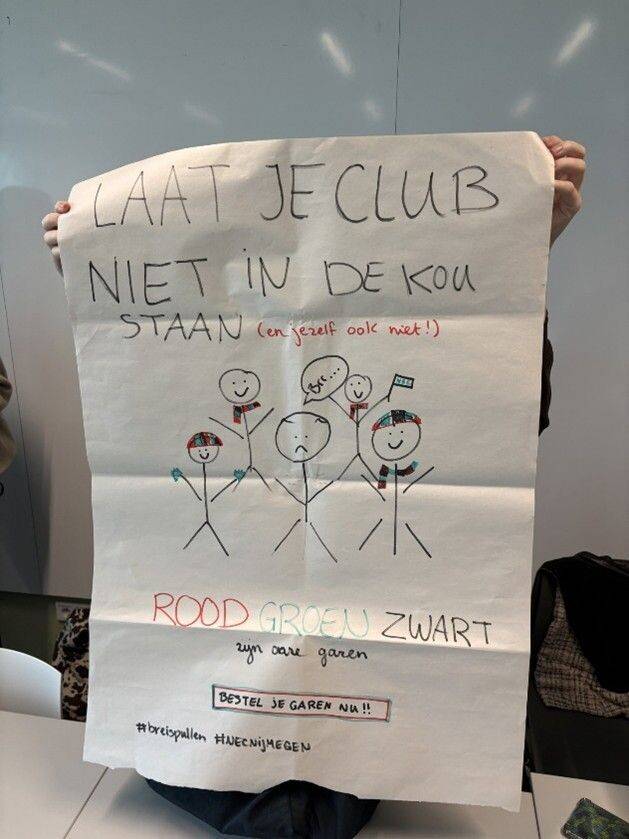 LAAT JE CLUB
NIET IN DE KOU
STAAN (en jezelf ook niet!)
Brr...
NEC
ROOD GROEN ZWART
zijn onze garen
BESTEL JE GAREN NU!!
#breispullen #NECNIJMEGEN